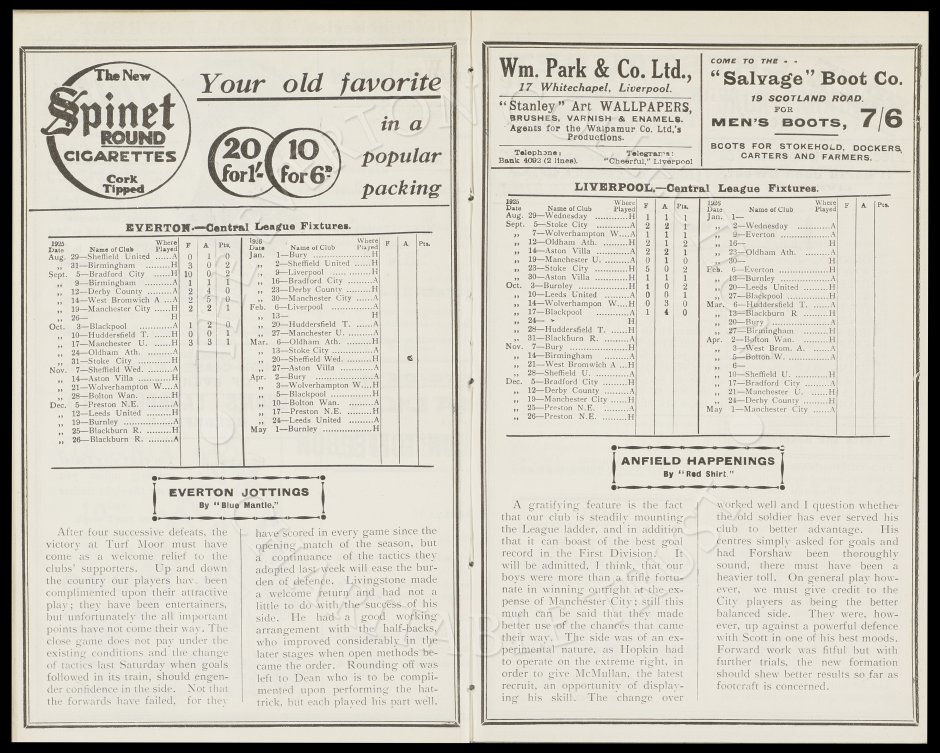 The New
Spinet
ROUND
CIGARETTES
Cork
Tipped
Your old favorite
in a
popular
packing
20
for 1/-
10
for 6D
EVERTON.—Central League Fixtures.
1925 Date Name of Club Where Played F A Pts.
Aug. 29—Sheffield United ......A 0 1 0
„ 31—Birmingham ........H 3 0 2
Sept. 5—Bradford City ......H 10 0 2
„ 9—Birmingham ........A 1 1 1
„ 12—Derby County ......A 2 4 0
„ 14—West Bromwich A ...A 2 5 0
„ 19—Manchester City ....H 2 2 1
„ 26— H
Oct. 3—Blackpool ..........A 1 2 0
„ 10—Huddersfield T. ......H 0 0 1
„ 17—Manchester U. ......H 3 3 1
„ 24—Oldham Ath. ........A
„ 31—Stoke City ..........H
Nov. 7—Sheffield Wed. ......A
„ 14—Aston Villa ........H
„ 21—Wolverhampton W...A
„ 28—Bolton Wan. ........H
Dec. 5—Preston N.E. ........A
„ 12—Leeds United ........H
„ 19—Burnley ............A
„ 25—Blackburn R. ........H
„ 26—Blackburn R. ........A
1926 Date Name of Club Where Played F A Pts.
Jan. 1—Bury ................H
„ 2—Sheffield United ......H
„ 9—Liverpool ............H
„ 16—Bradford City ........A
„ 23—Derby County ........H
„ 30—Manchester City ......A
Feb. 6—Liverpool ............A
„ 13— H
„ 20—Huddersfield T. ......A
„ 27—Manchester U. ........A
Mar. 6—Oldham Ath. ........H
„ 13—Stoke City ............A
„ 20—Sheffield Wed. ........H
„ 27—Aston Villa ..........A
Apr. 2—Bury ................A
„ 3—Wolverhampton W....H
„ 5—Blackpool ............H
„ 10—Bolton Wan. ..........A
„ 17—Preston N.E. ..........H
„ 24—Leeds United ........A
May 1—Burnley ..............H
EVERTON JOTTINGS
By "Blue Mantle."
After four successive defeats, the
victory at Turf Moor must have
come as a welcome relief to the
clubs' supporters. Up and down
the country our players hav. been
complimented upon their attractive
play; they have been entertainers,
but unfortunately the all important
points have not come their way. The
close game does not pay under the
existing conditions and the change
of tactics last Saturday when goals
followed in its train, should engen-
der confidence in the side. Not that
the forwards have failed, for they
have scored in every game since the
opening match of the season, but
a continuance of the tactics they
adopted last week will ease the bur-
den of defence. Livingstone made
a welcome return and had not a
little to do with the success of his
side. He had a good working
arrangement with the half-backs,
who improved considerably in the
later stages when open methods be-
came the order. Rounding off was
left to Dean who is to be compli-
mented upon performing the hat-
trick, but each played his part well.
Wm. Park & Co. Ltd.,
17 Whitechapel, Liverpool.
"Stanley" Art WALLPAPERS,
BRUSHES, VARNISH & ENAMELS.
Agents for the Walpamur Co. Ltd.'s
Productions.
Telephone: Telegrams:
Bank 4092 (2 lines). "Cheerful," Liverpool
COME TO THE - -
"Salvage" Boot Co.
19 SCOTLAND ROAD.
FOR
MEN'S BOOTS, 7/6
BOOTS FOR STOKEHOLD, DOCKERS,
CARTERS AND FARMERS.
LIVERPOOL.—Central League Fixtures.
1925 Date Name of Club Where Played F A Pts.
Aug. 29—Wednesday ..........H 1 1 1
Sept. 5—Stoke City ..........A 2 2 1
„ 7—Wolverhampton W...A 1 1 1
„ 12—Oldham Ath. ........H 2 1 2
„ 14—Aston Villa ..........A 2 2 1
„ 19—Manchester U. ......A 0 1 0
„ 23—Stoke City ..........H 5 0 2
„ 30—Aston Villa ..........H 1 1 1
Oct. 3—Burnley ............H 1 0 2
„ 10—Leeds United ........A 0 0 1
„ 14—Wolverhampton W. H 0 3 0
„ 17—Blackpool ..........A 1 4 0
„ 24— H
„ 28—Huddersfield T. ......H
„ 31—Blackburn R. ........A
Nov. 7—Bury ..............H
„ 14—Birmingham ........A
„ 21—West Bromwich A ...H
„ 28—Sheffield U. ..........A
Dec. 5—Bradford City ........H
„ 12—Derby County ........A
„ 19—Manchester City ......H
„ 25—Preston N.E. ........A
„ 26—Preston N.E. ........H
1926 Date Name of Club Where Played F A Pts.
Jan. 1—
„ 2—Wednesday ..........A
„ 9—Everton ............A
„ 16— H
„ 23—Oldham Ath. ........A
„ 30— H
Feb. 6—Everton ............H
„ 13—Burnley ............A
„ 20—Leeds United ........H
„ 27—Blackpool ..........H
Mar. 6—Huddersfield T. ......A
„ 13—Blackburn R ........H
„ 20—Bury ..............A
„ 27—Birmingham ........H
Apr. 2—Bolton Wan. ........H
„ 3—West Brom. A. ......A
„ 5—Bolton W. ..........A
„ 6—
„ 10—Sheffield U. ..........H
„ 17—Bradford City ........A
„ 21—Manchester U. ......H
„ 24—Derby County ........H
May 1—Manchester City ......A
ANFIELD HAPPENINGS
By "Red Shirt."
A gratifying feature is the fact
that our club is steadily mounting
the League ladder, and in addition
that it can boast of the best goal
record in the First Division. It
will be admitted, I think, that our
boys were more than a trifle fortu-
nate in winning outright at the ex-
pense of Manchester City; still this
much can be said that they made
better use of the chances that came
their way. The side was of an ex-
perimental nature, as Hopkin had
to operate on the extreme right, in
order to give McMullan, the latest
recruit, an opportunity of display-
ing his skill. The change over
worked well and I question whether
the old soldier has ever served his
club to better advantage. His
centres simply asked for goals and
had Forshaw been thoroughly
sound, there must have been a
heavier toll. On general play how-
ever, we must give credit to the
City players as being the better
balanced side. They were, how-
ever, up against a powerful defence
with Scott in one of his best moods.
Forward work was fitful but with
further trials, the new formation
should shew better results so far as
footcraft is concerned.